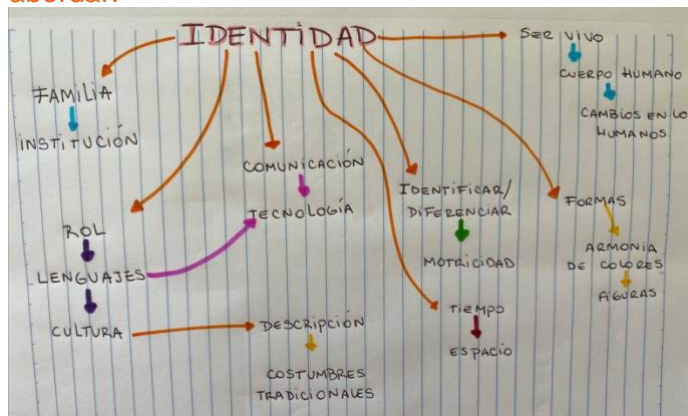 abordar.
IDENTIDAD
SER VIVO
CUERPO HUMANO
CAMBIOS EN LO
HUMANOS
FAMILIA
INSTITUCIÓN
COMUNICACIÓN
TECNOLOGÍA
IDENTIFICAR/
DIFERENCIAR
MOTRICIDAD
FORMAS
ARMONIA
DE COLORES
FIGURAS
ROL
LENGUAJES
CULTURA
DESCRIPCIÓN
COSTUMBRES
TRADICIONALES
TIEMPO
ESPACIO